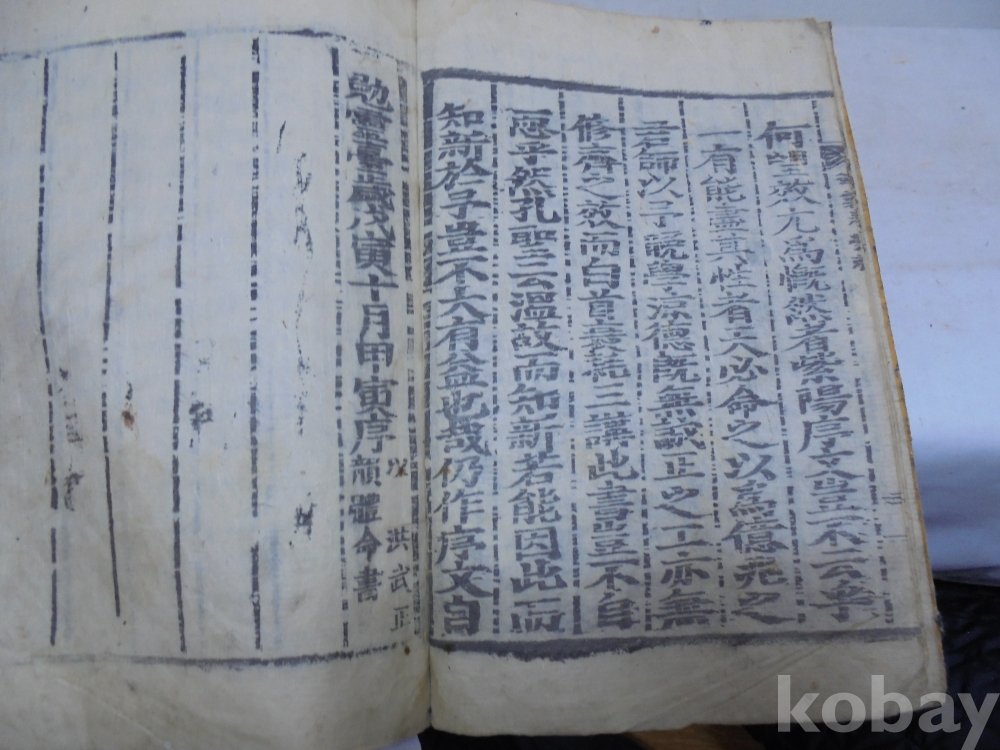 何望效尤爲慨然者紫陽序文豈不云乎
一有能盡其性者天必命之以爲億兆之
君師以予晚學凉德旣無誠正之工亦無
修齊之效而白首衰耗三講此書豈不自
恧乎然孔聖云溫故而知新若能因此而
知新於予豈不大有益也哉仍作序文自
洪武正
勉靈臺歲戊寅十月甲寅序顔體命書
kobay